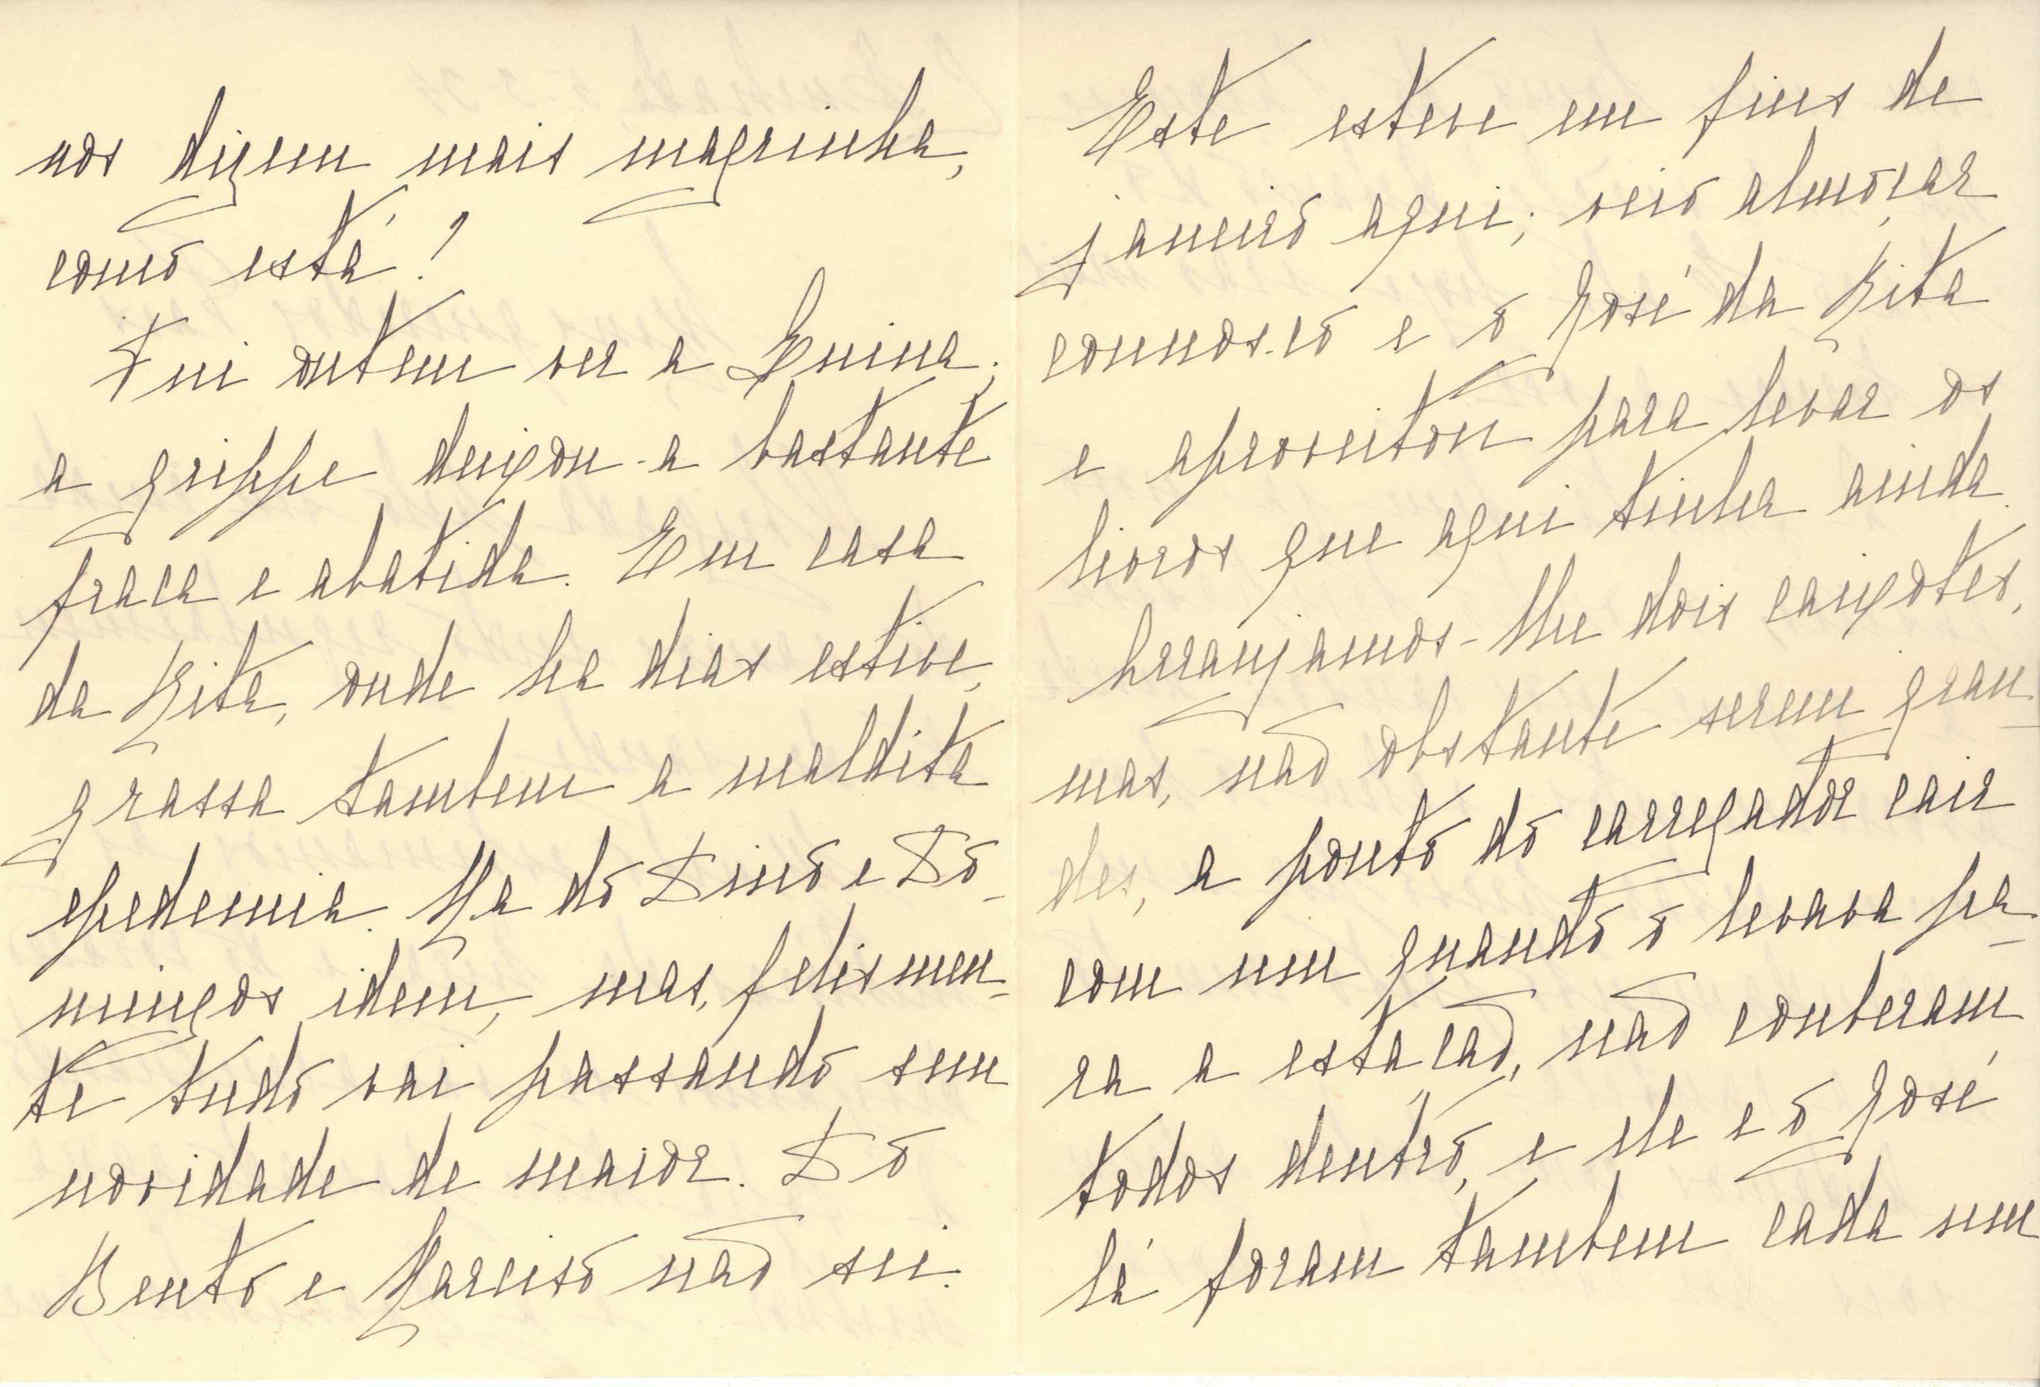 nos dizem mais magrinha,
como está?
Fui ontem ver a Eunina;
a grippe deixou-a bastante
fraca e abatida. Em casa
da Rita, onde ha dias estive,
grassa tambem a maldita
epedemia. Na do Dino e Do-
mingos idem, mas, felismen-
te tudo vai passando sem
novidade de maior. Do
Bento e Narciso não sei.
Este esteve em fins de
janeiro aqui; veio almoçar
connosco e o José da Rita
e aproveitou para levar os
livros que aqui tinha ainda.
Arranjamos-lhe dois caixotes,
mas, não obstante serem gran-
des, a ponto do carregador cair
com um quando o levava pa-
ra a estação, não couberam
todos dentro, e ele e o José
lá foram tambem cada um